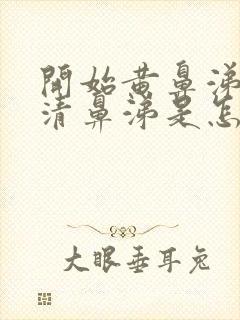 開始黄鼻涕
清鼻涕是怎
大眼垂耳兔